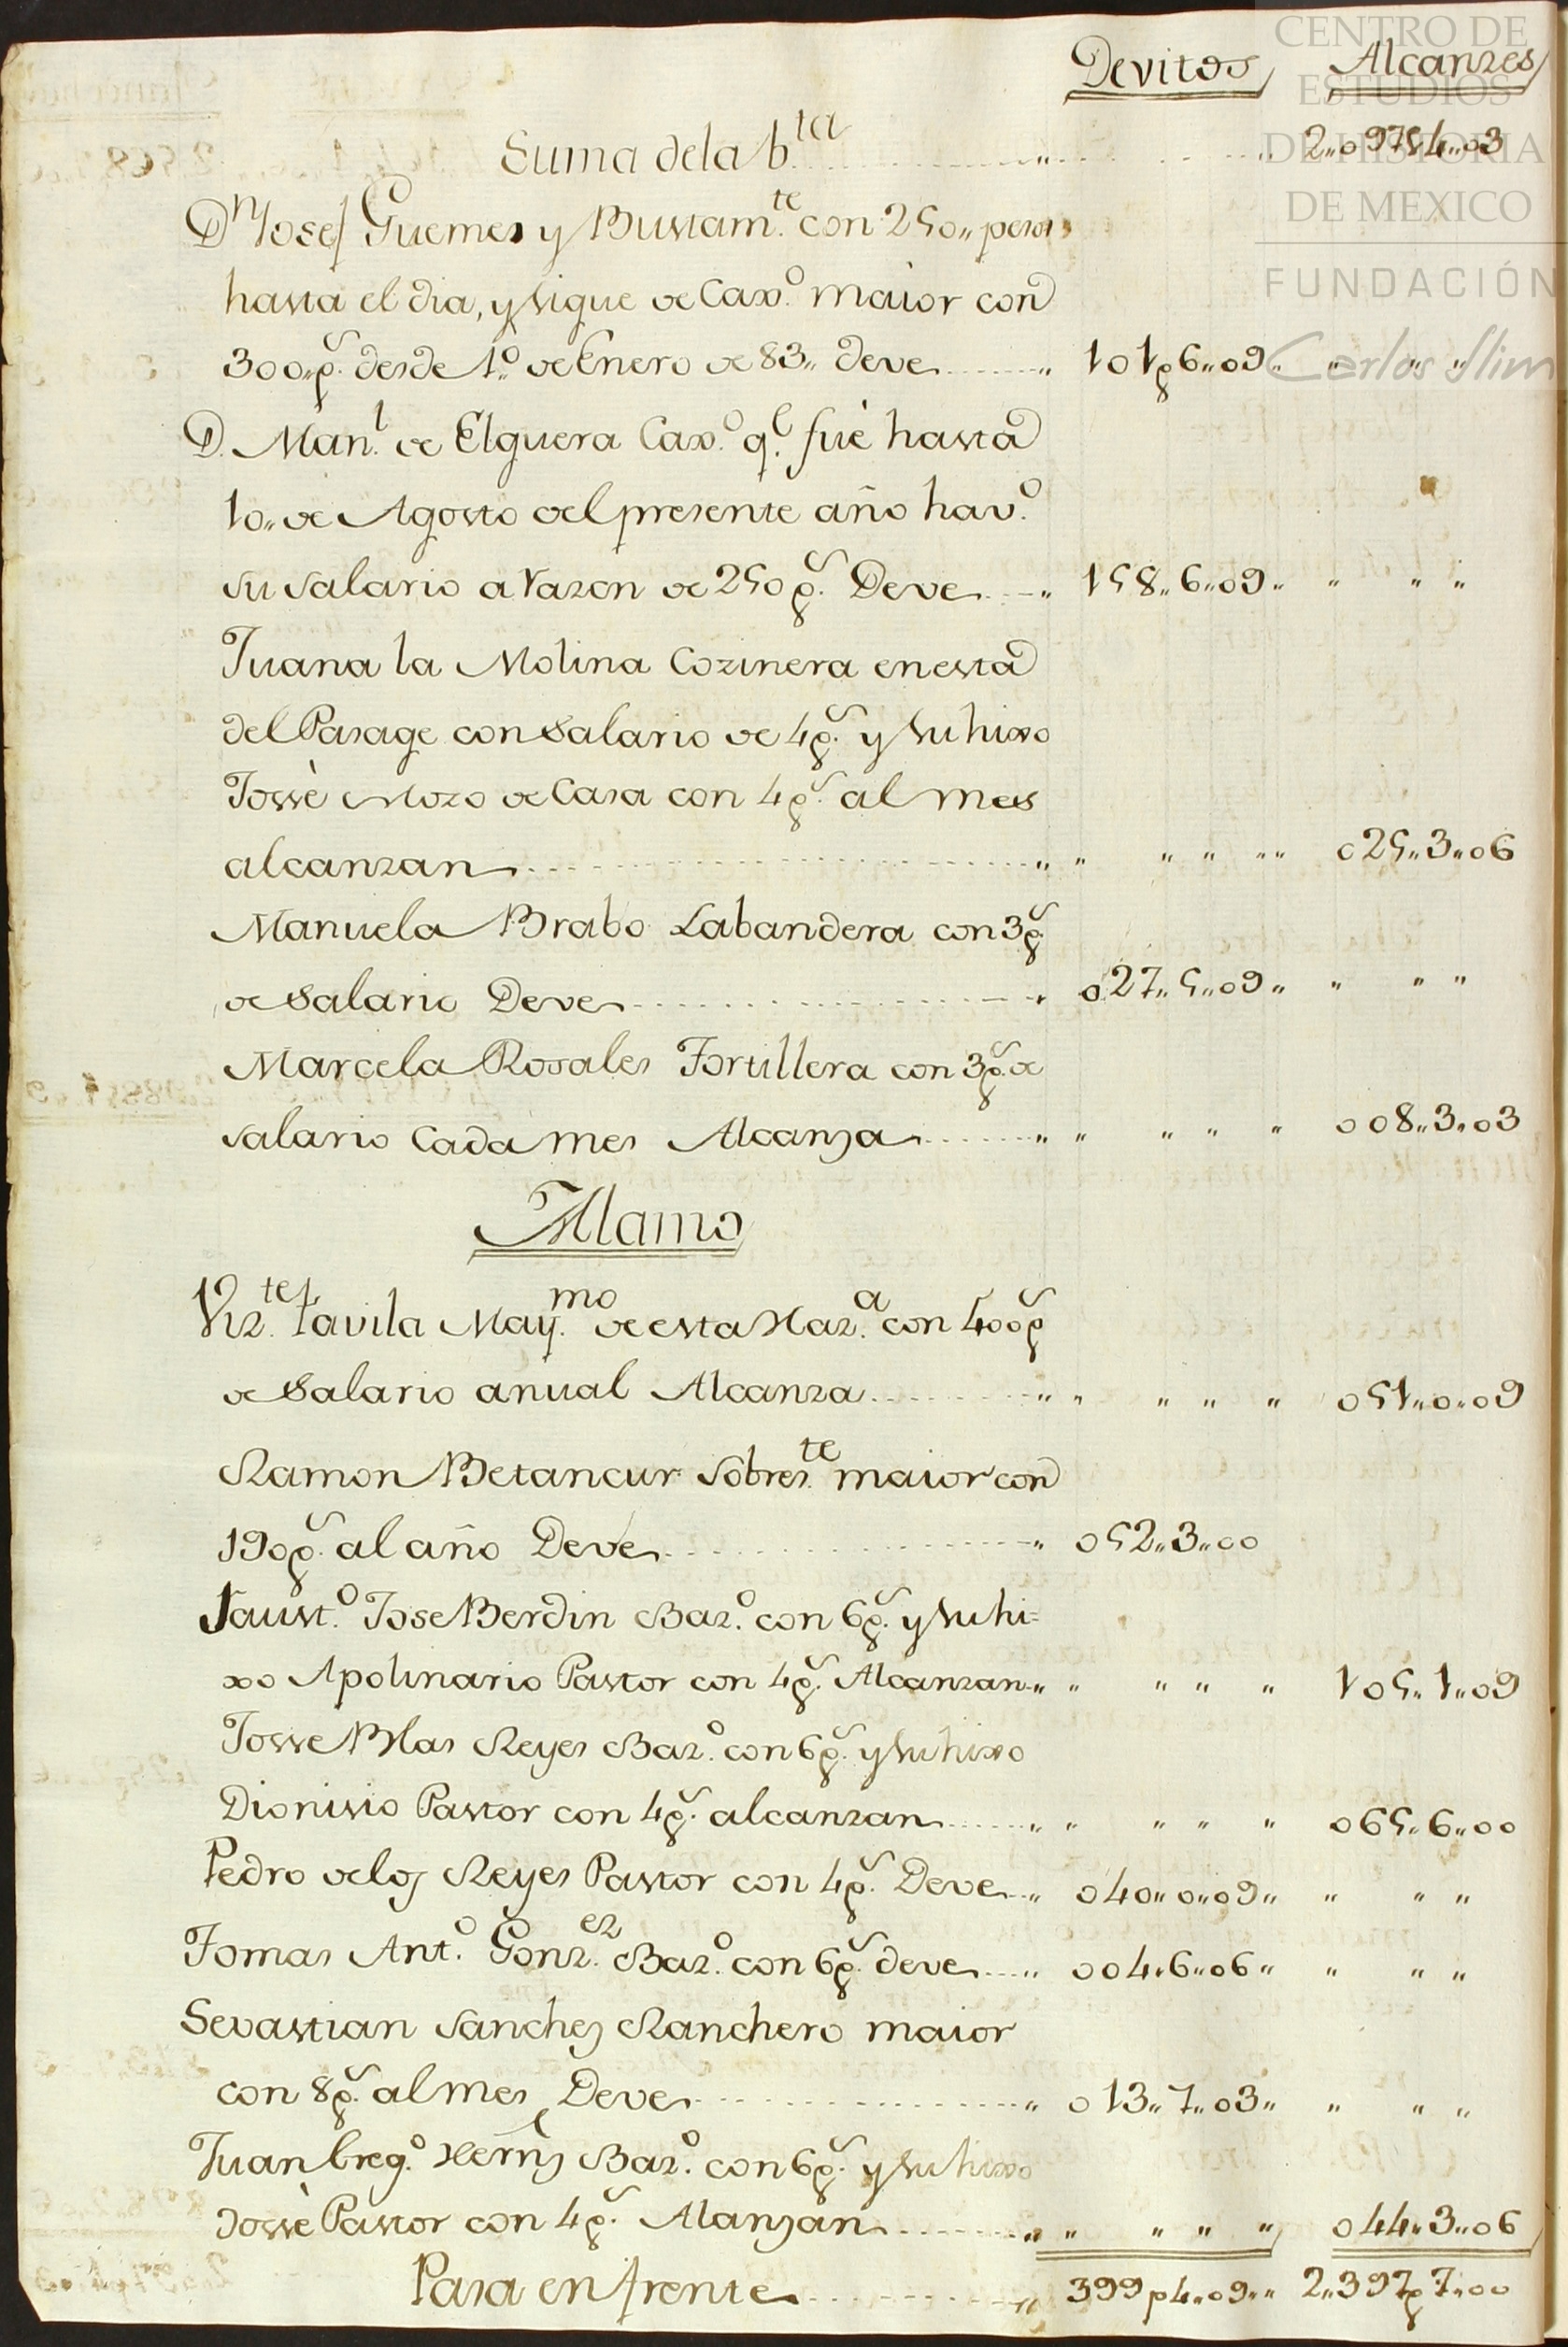 Devitos Alcanzes
Suma dela b.ta 2,,097p4,,03
Dn Josef Guemes y Bustam.te con 250,, pesos
hasta el dia, y sigue de Cax.o maior con
300,,p.s desde 1.o de Enero de 83,, deve 101p6,,09,, ,, ,, ,,
D. Man.l de Elguera Cax.o q.e fuè hasta
10,, de Agosto del presente año hav.o
su salario a razon de 250 p.s Deve 158,,6,,09,, ,, ,, ,,
Juana la Molina Cozinera en esta
del Pasage con salario de 4p.s y su hixo
Jossè Mozo de Casa con 4p.s al mes
alcanzan ,, ,, ,, ,, ,, 025,,3,,06
Manuela Brabo Labandera con 3p.s
de salario Deve 027,,5,,09,, ,, ,, ,,
Marcela Rosales Tortillera con 3p.s de
salario Cada mes Alcanza ,, ,, ,, ,, ,, 008,,3,,03
Alamo
Viz.te Favila May.mo de esta Haz.a con 400p.s
de salario anual Alcanza ,, ,, ,, ,, ,, 051,,0,,09
Ramon Betancur Sobres.te maior con
190p.s al año Deve 052,,3,,00
Faust.o Jose Berdin Baz.o con 6p.s y su hi=
xo Apolinario Pastor con 4p.s Alcanzan ,, ,, ,, ,, ,, 105,,1,,09
Josse Blas Reyes Baz.o con 6p.s y su hixo
Dionisio Pastor con 4p.s alcanzan ,, ,, ,, ,, ,, 065,,6,,00
Pedro delos Reyes Pastor con 4p.s Deve 040,,0,,09,, ,, ,, ,,
Tomas Ant.o Gonz.ez Baz.o con 6p.s deve 004,,6,,06,, ,, ,, ,,
Sevastian Sanchez Ranchero maior
con 8p.s al mes Deve 013,,7,,03,, ,, ,, ,,
Juan Greg.o Hernz Baz.o con 6p.s y su hixo
Jossè Pastor con 4p.s Alanzan ,, ,, ,, ,, ,, 044,,3,,06
Pasa en frente 399p4,,09,, 2,,397p7,,00
CENTRO DE
ESTUDIOS
DE HISTORIA
DE MEXICO
FUNDACIÓN
Carlos Slim